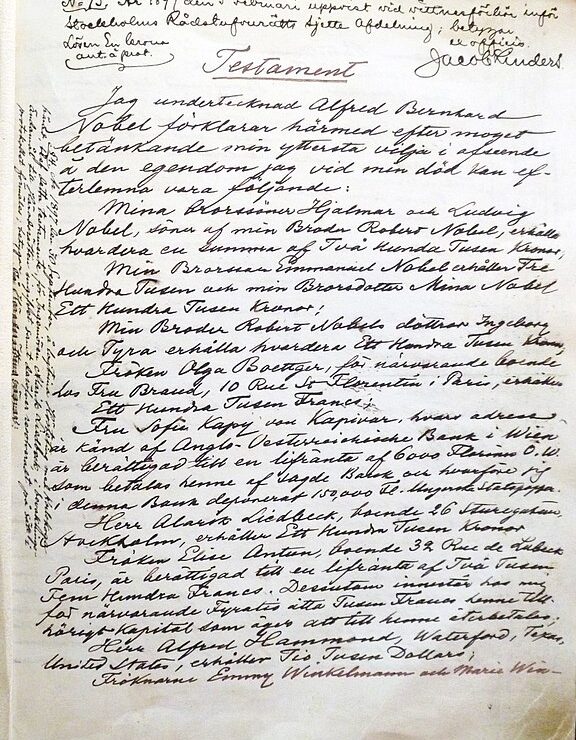 No 73, År 1897 den 5 Februari uppvist vid vittnesförhör inför
Stockholms Rådstufvurätts Sjette Afdelning; betygar
Lösen En krona
ex officio.
ant. à prot.
Jacob Enders.
Testament
Jag undertecknad Alfred Bernhard
Nobel förklarar härmed efter moget
betänkande min yttersta vilja i afseende
å den egendom jag vid min död kan ef-
terlemna vara följande:
Mina brorssöner Hjalmar och Ludvig
Nobel, söner af min Broder Robert Nobel, erhålla
hvardera en summa af Två Hundra Tusen Kronor;
Min Brorsson Emmanuel Nobel erhåller Tre
Hundra Tusen och min Brorsdotter Mina Nobel
Ett Hundra Tusen Kronor;
Min Broder Robert Nobels döttrar Ingeborg
och Tyra erhålla hvardera Ett Hundra Tusen Kronor;
Fröken Olga Boettger, för närvarande boende
hos Fru Brand, 10 Rue St Florentin i Paris, erhåller
Ett Hundra Tusen Francs;
Fru Sofie Kapy von Kapivar, hvars adress
är känd af Anglo-Oesterreichische Bank i Wien
är berättigad till en lifränta af 6000 Florins Ö.W.
som betalas henne af sagde Bank och hvarföre jag
i denna Bank deponerat 150,000 Fl. i Ungerska Statspapper.
Herr Alarik Liedbeck, boende 26 Sturegatan,
Stockholm, erhåller Ett Hundra Tusen Kronor
Fröken Elise Antun, boende 32 Rue de Lubeck
Paris, är berättigad till en lifränta af Två Tusen
Fem Hundra Francs. Dessutom innestår hos mig
för närvarande Fyratio åtta Tusen Francs henne till-
hörigt Kapital som äger att till henne återbetalas;
Herr Alfred Hammond, Waterford, Texas,
United States, erhåller Tio Tusen Dollars;
Fröknarne Emmy Winkelmann och Marie Win-